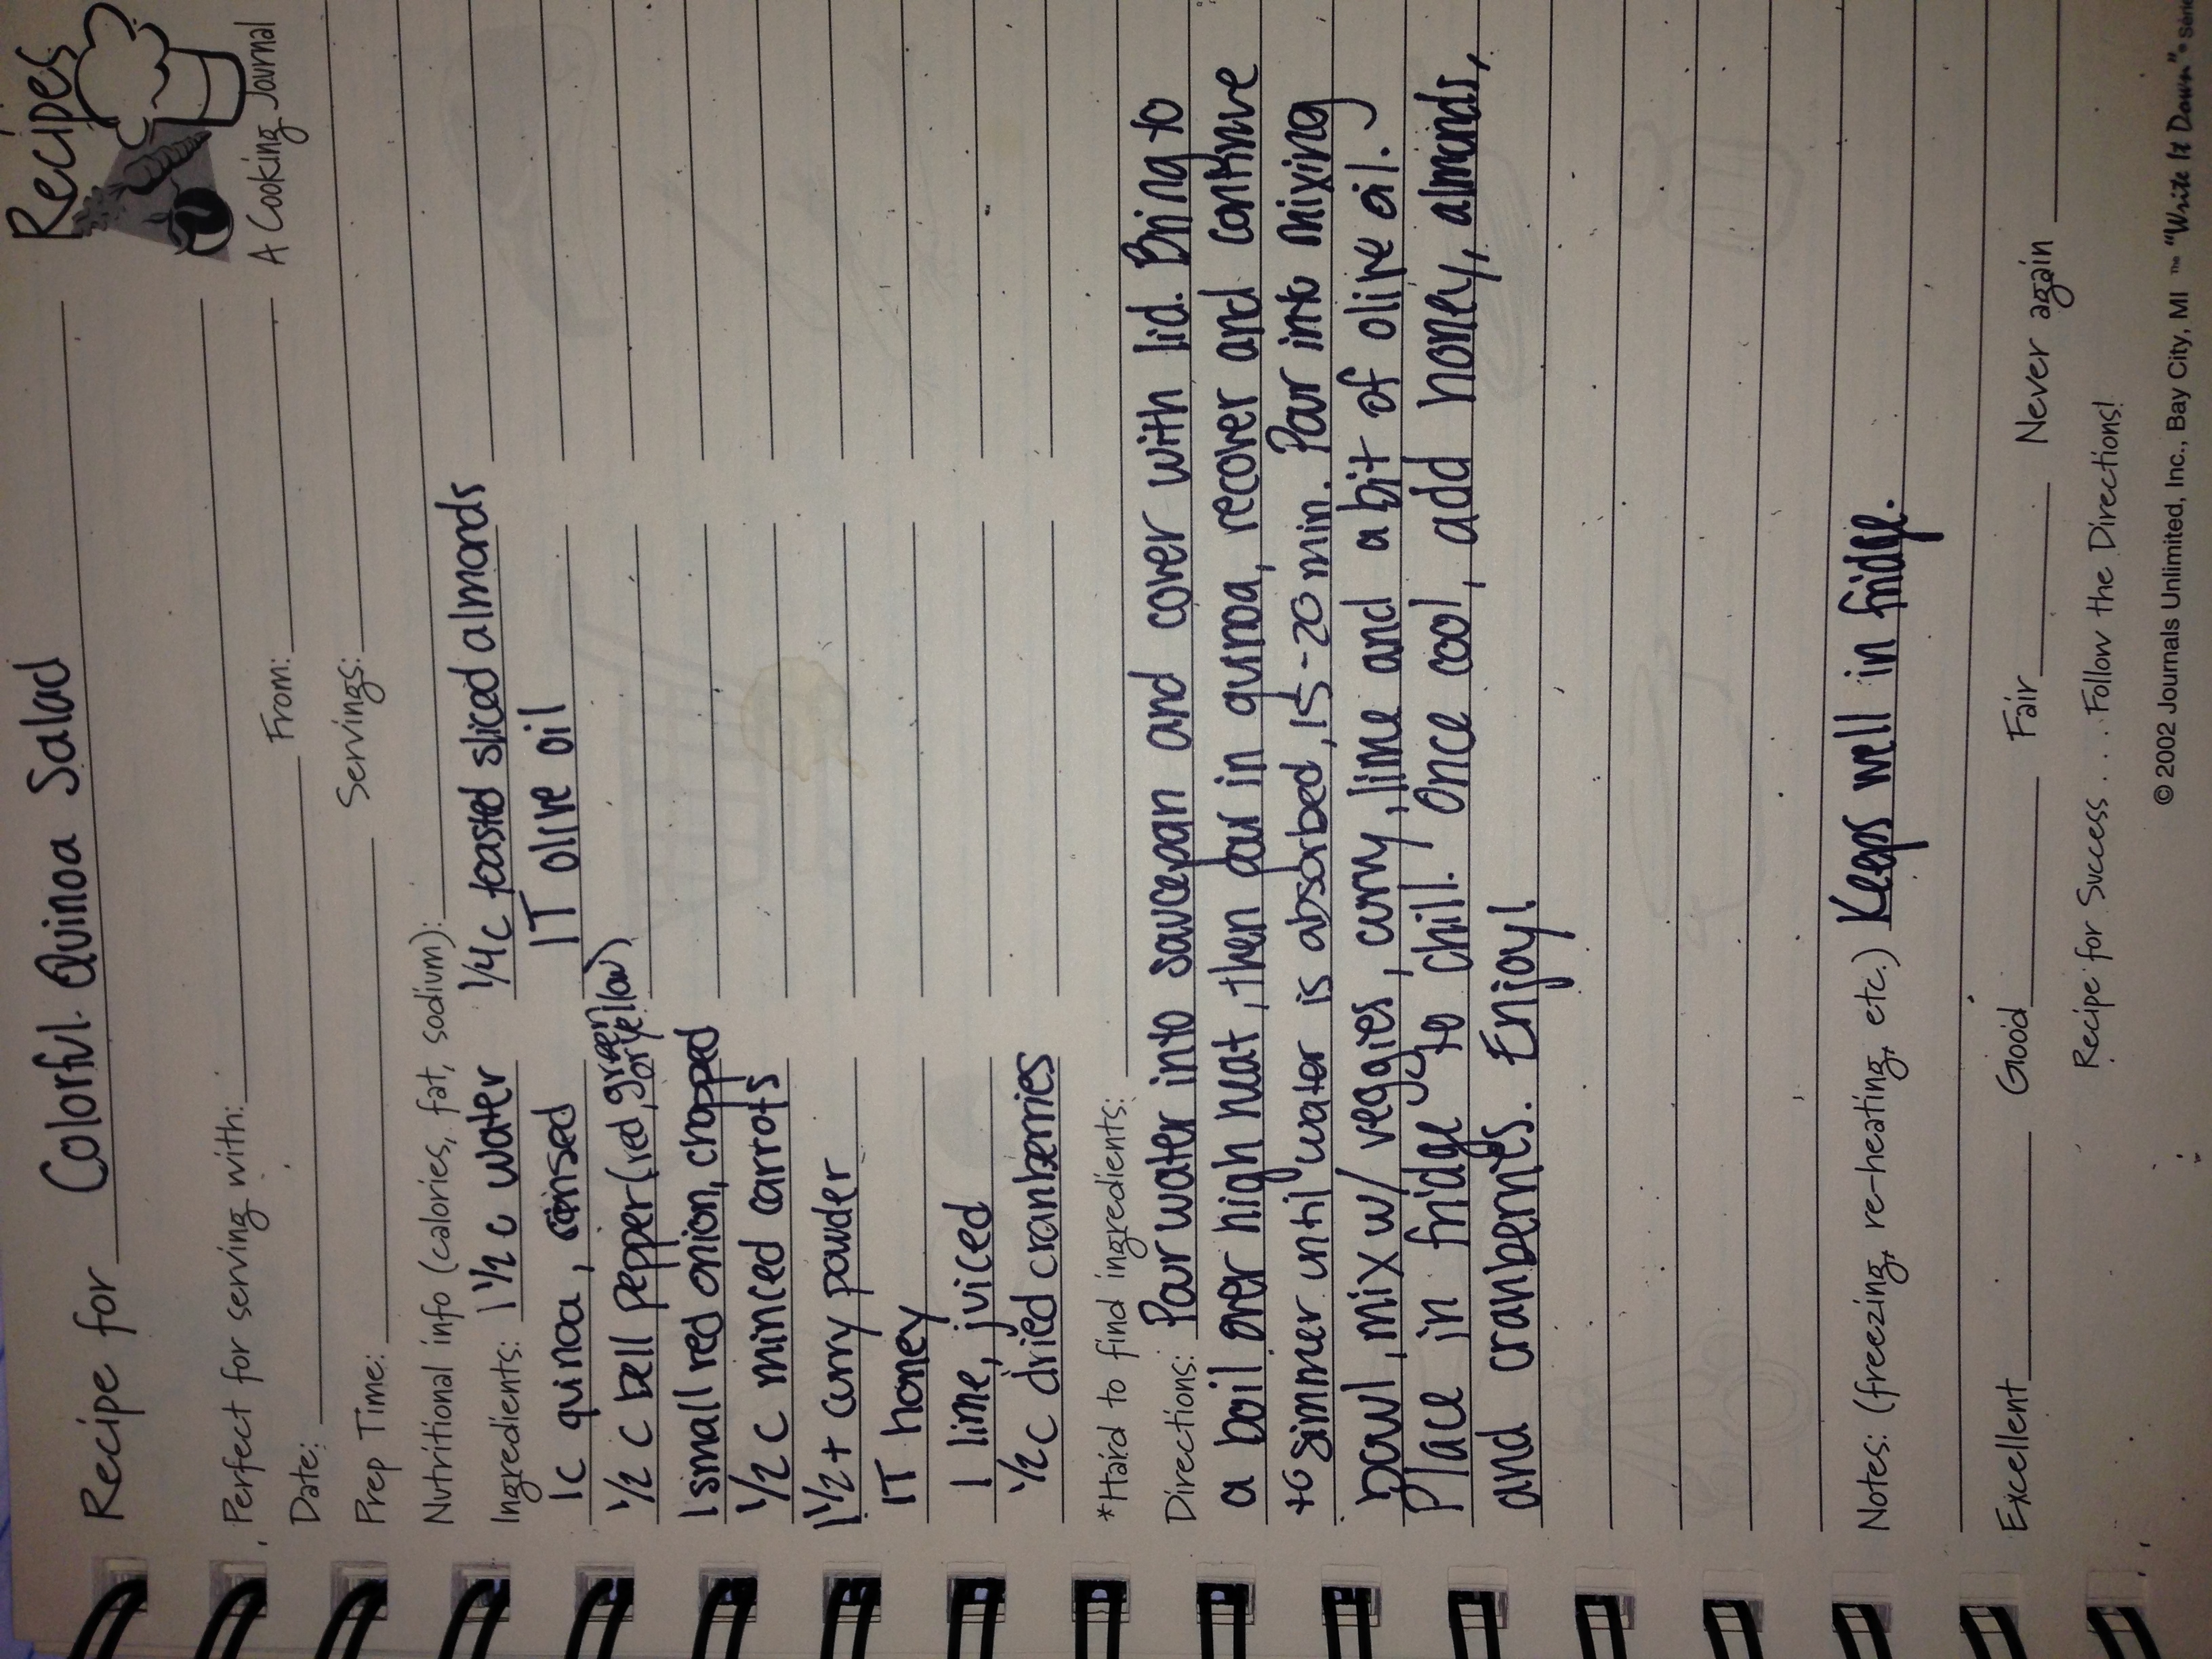 Recipes
Recipe for Colorful Quinoa Salad
Perfect for serving with:
A Cooking Journal
Date: From:
Prep Time: Servings:
Nutritional info (calories, fat, sodium):
Ingredients: 1 1/2 c water 1/4 c toasted sliced almonds
1c quinoa, rinsed 1T olive oil
1/2 c bell pepper (red, green or yellow)
1 small red onion, chopped
1/2 c minced carrots
1 1/2 t curry powder
1T honey
1 lime, juiced
1/2 c dried cranberries
*Hard to find ingredients:
Directions: Pour water into saucepan and cover with lid. Bring to
a boil over high heat, then pour in quinoa, recover and continue
to simmer until water is absorbed, 15-20 min. Pour into mixing
bowl, mix w/ veggies, curry, lime and a bit of olive oil.
Place in fridge to chill. Once cool, add honey, almonds,
and cranberries. Enjoy!
Notes: (freezing, re-heating, etc.) Keeps well in fridge.
Excellent Good Fair Never again
Recipe for Success . . . . Follow the Directions!
© 2002 Journals Unlimited, Inc., Bay City, MI ™ "Write It Down"®